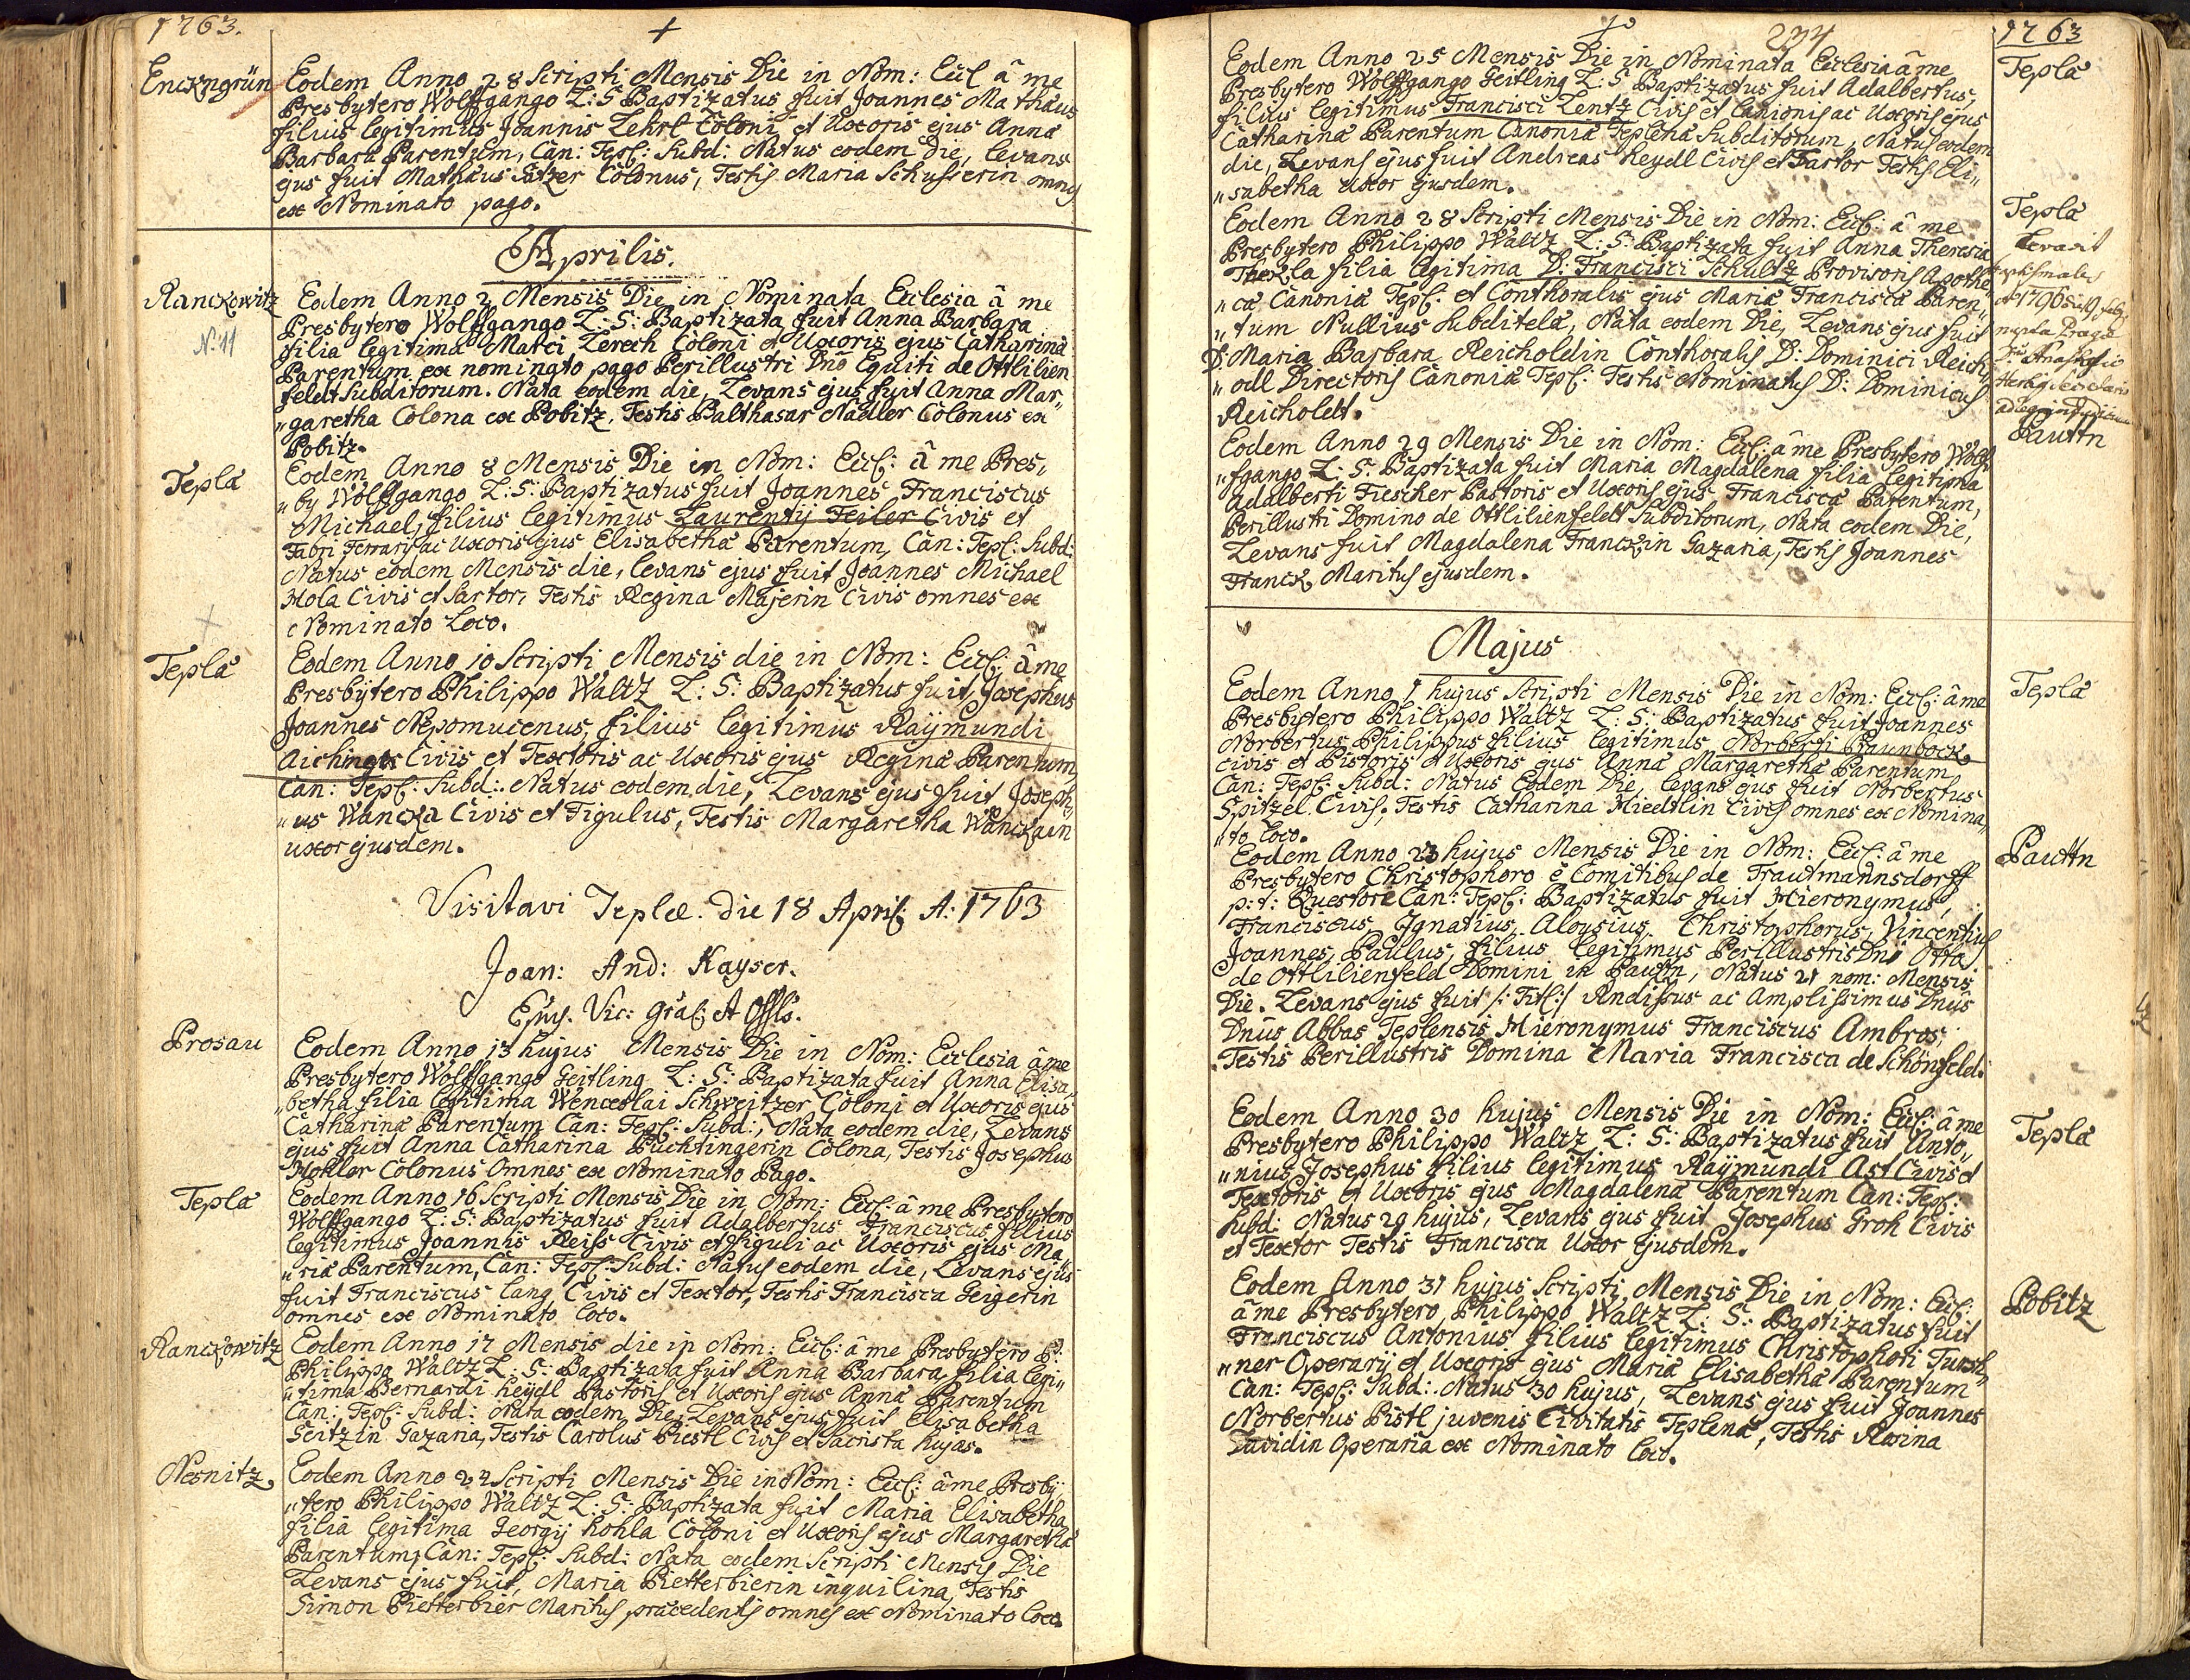 1763.
Enckngrün
Eodem Anno 28 Scripti Mensis Die in Nom: Eccl â me
Presbytero Wolffgango L: S Baptizatus fuit Joannes Mathæus
filius legitimus Joannis Zekrl Coloni et Uxoris ejus Anna
Barbara Parentum, Can: Tepl: Subd: Natus eodem die, levans
ejus fuit Mathæus Satzer Colonus, Testis Maria Schusserin omnes
ex Nominato pago.
Aprilis.
Ranckowitz
N: 11
Eodem Anno 2 Mensis Die in Nominata Ecclesia â me
Presbytero Wolffgango L: S: Baptizata fuit Anna Barbara
filia legitima Matei Zerech Coloni et Uxoris ejus Catharina
Parentum ex nominato pago Perillustri Dno Equiti de Ottlilien
feldt Subditorum. Nata eodem die, Levans ejus fuit Anna Mar„
„garetha Colona ex Pobitz, Testis Balthasar Nadler Colonus ex
Pobitz.
Tepla
Eodem Anno 8 Mensis Die in Nom: Eccl: â me Pres„
„by Wolffgango L: S: Baptizatus fuit Joannes Franciscus
Michael, filius legitimus Laurentij Feiler Civis et
Fabri Ferrarij ac Uxoris ejus Elisabetha Parentum, Can: Tepl: Subd:
Natus eodem Mensis die, levans ejus fuit Joannes Michael
Hola Civis et Sartor, Testis Regina Majerin Civis omnes ex
Nominato Loco.
Tepla
Eodem Anno 10 Scripti Mensis die in Nom: Eccl: â me
Presbytero Philippo Waltz L: S: Baptizatus fuit Josephus
Joannes Nepomucenus, filius legitimus Raÿmundi
Aichinger Civis et Textoris ac Uxoris ejus Regina Parentum
Can: Tepl: Subd: Natus eodem die, Levans ejus fuit Joseph„
„us Wancka Civis et Figulus, Testis Margaretha Wanckain
uxor ejusdem.
Visitavi Teplæ die 18 April: A: 1763
Joan: And: Kayser.
Episc. Vic: gräl: et Offls.
Prosau
Eodem Anno 13 hujus Mensis Die in Nom: Ecclesia â me
Presbytero Wolffgango Geitling L: S: Baptizata fuit Anna Elisa„
„betha filia legitima Wenceslai Schweitzer Coloni et Uxoris ejus
Catharina Parentum Can: Tepl: Subd:, Nata eodem die, Levans
ejus fuit Anna Catharina Püchtingerin Colona, Testis Josephus
Holler Colonus Omnes ex Nominato Pago.
Tepla
Eodem Anno 16 Scripti Mensis Die in Nom: Eccl: â me Presbytero
Wolffgango L: S: Baptizatus fuit Adalbertus Franciscus filius
legitimus Joannis Reiss Civis et figuli ac Uxoris ejus Ma„
„ria Parentum, Can: Tepl: Subd: Natus eodem die, Levans ejus
fuit Franciscus Lang Civis et Textor, Testis Francisca Geigerin
omnes ex Nominato loco.
Ranckowitz
Eodem Anno 17 Mensis die in Nom: Eccl: â me Presbytero P:
Philippo Waltz L: S: Baptizata fuit Anna Barbara filia legi„
„tima Bernardi heydl Pastoris et Uxoris ejus Anna Parentum
Can: Tepl: Subd: Nata eodem Die, Levans ejus fuit Elisabetha
Geitzin Gazaria, Testis Carolus Piestl Civis et Sacrista hujas.
Nesnitz
Eodem Anno 24 Scripti Mensis Die in Nom: Eccl: â me Presby„
„tero Philippo Waltz L: S: Baptizata fuit Maria Elisabetha
filia legitima Georgij hohla Coloni et Uxoris ejus Margaretha
Parentum, Can: Tepl: Subd: Nata eodem Scripti Mensis Die
Levans ejus fuit, Maria Pietterbierin inquilina, Testis
Simon Pietterbier Maritus præcedentis omnes ex Nominato loco.
234
1763
Eodem Anno 25 Mensis Die in Nominata Ecclesia â me
Presbytero Wolffgango Geitling L: S Baptizatus fuit Adalbertus,
filius legitimus Francisci Lentz Civis et Lanionis ac Uxoris ejus
Catharina Parentum Canonia Teplena Subditorum, Natus eodem
die, Levans ejus fuit Andreas heydl Civis et Fartor Testis Eli„
„sabetha Uxor ejusdem.
Tepla
Eodem Anno 28 Scripti Mensis Die in Nom: Eccl: â me
Presbytero Philippo Waltz L: S: Baptizata fuit Anna Theresia
Thekla filia legitima D: Francisci Schultz Provisoris Apothe„
„ca Canonia Tepl: et Conthoralis ejus Maria Francisca Paren„
„tum Nullius Subditela, Nata eodem Die, Levans ejus fuit
D: Maria Barbara Reicholdin Conthoralis D: Dominici Reich„
„oll Directoris Canonia Tepl: Testis Nominatus D: Dominicus
Reicholdt.
Tepla
Levavit
nupta Praga
Pauttn
Eodem Anno 29 Mensis Die in Nom: Eccl: â me Presbytero Wolf„
„fgango L: S: Baptizata fuit Maria Magdalena filia legitima
Adalberti Fiescher Pastoris et Uxoris ejus Francisca Parentum,
Perillustri Domino de Ottlilienfeldt Subditorum, Nata eodem Die,
Levans fuit Magdalena Franckin Gazaria, Testis Joannes
Franck Maritus ejusdem.
Majus
Tepla
Eodem Anno 1 hujus Scripti Mensis Die in Nom: Eccl: â me
Presbytero Philippo Waltz L: S: Baptizatus fuit Joannes
Norbertus Philippus filius legitimus Norberti Paunbock
civis et Pistoris et Uxoris ejus Anna Margaretha Parentum
Can: Tepl: Subd: Natus Eodem Die, levans ejus fuit Norbertus
Spitzel Civis, Testis Catharina Hiedtlin Cives omnes ex Nomina„
„to loco.
Pauttn
Eodem Anno 23 hujus Mensis Die in Nom: Eccl: â me
Presbytero Christophoro è Comitibus de Trautmannsdorff
p: t: Questore Can: Tepl: Baptizatus fuit Hieronymus,
Franciscus, Ignatius, Aloysius, Christophorus, Vincentius
Joannes, Paulus, filius legitimus Perillustris Dni Otta
de Ottlilienfeld Domini in Pauttn, Natus 21 nom: Mensis
Die. Levans ejus fuit /: Titl: / Rndissus ac Amplissimus Dnus
Dnus Abbas Teplensis Hieronymus Franciscus Ambros,
Testis Perillustris Domina Maria Francisca de Schönfeld.
Tepla
Eodem Anno 30 hujus Mensis Die in Nom: Eccl: â me
Presbytero Philippo Waltz L: S: Baptizatus fuit Anto„
„nius Josephus filius legitimus Raÿmundi Ast Civis et
Textoris et Uxoris ejus Magdalena Parentum Can: Tepl:
Subd: Natus 29 hujus, Levans ejus fuit Josephus Groh Civis
et Textor Testis Francisca Uxor ejusdem.
Pobitz
Eodem Anno 31 hujus Scripti Mensis Die in Nom: Eccl:
â me Presbytero Philippo Waltz L: S: Baptizatus fuit
Franciscus Antonius filius legitimus Christophori Tursch„
„ner Operarij et Uxoris ejus Maria Elisabetha Parentum
Can: Tepl: Subd: Natus 30 hujus, Levans ejus fuit Joannes
Norbertus Pistl juvenis Civitatis Teplena, Testis Rosina
Davidin Operaria ex Nominato loco.